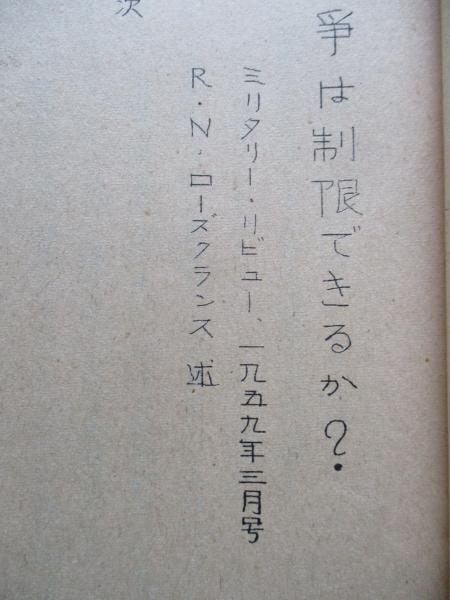 爭は制限できるか?
ミリタリー・リビュー、一九五九年三月号
R・N・ローズクランス 述
次